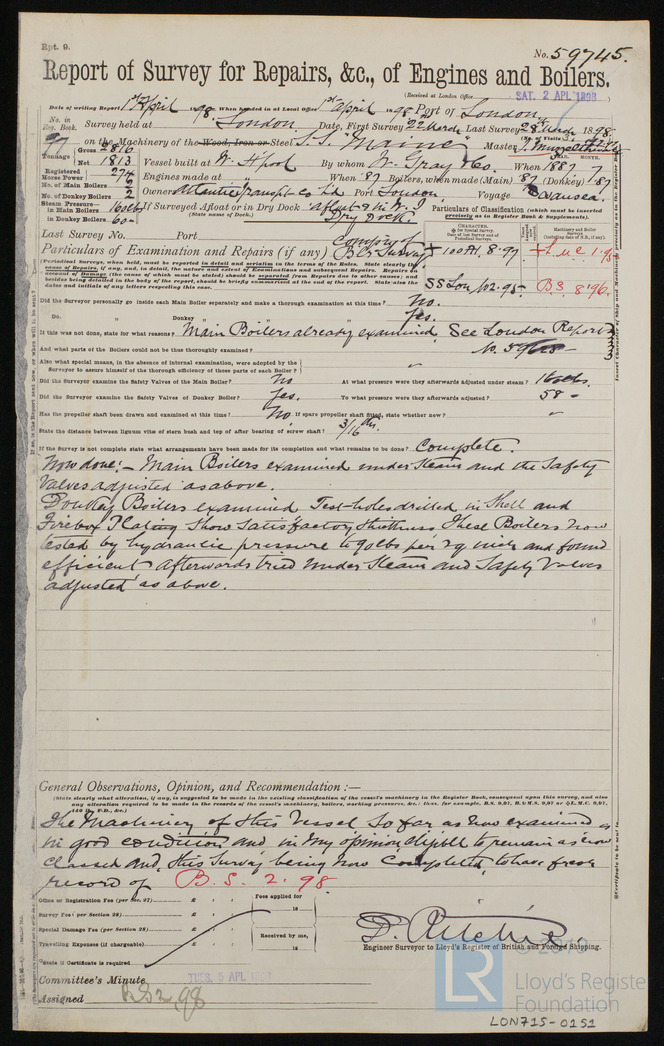 Rpt. 9.
No. 59745.
Report of Survey for Repairs, &c., of Engines and Boilers.
(Received at London Office
SAT. 2 APL 1898
Date of writing Report 1st April 1898. When handed in at Local Office 1st April 1898 Port of London
No. in Reg. Book. Survey held at London Date, First Survey 22 March Last Survey 28th March 1898.
on the Machinery of the Wood, Iron or Steel S.S. Maine Master
Tonnage Gross 2816
Net 1813 Vessel built at W. Hpool By whom W. Gray & Co. When 1887 MONTH. 7
Registered Horse Power 274 Engines made at " When '87 Boilers, when made (Main) '87 (Donkey) '87
No. of Main Boilers 2
No. of Donkey Boilers 2 Owners Atlantic Transpt Co Ld Port London Voyage Swansea.
Steam Pressure in Main Boilers 160 lbs If Surveyed Afloat or in Dry Dock afloat & in
in Donkey Boilers 60 (State name of Dock.) Dry Dock.
Particulars of Classification (which must be inserted precisely as in Register Book & Supplements).
Last Survey No. Port
Particulars of Examination and Repairs (if any) Compln of Blr Survey
+ 100 A1, 8.97 + L.M.C. 1.95
SS Lon No2.95 BS 8.96
(Periodical Surveys, when held, must be reported in detail and seriatim in the terms of the Rules. State clearly the
cause of Repairs, if any, and, in detail, the nature and extent of Examinations and subsequent Repairs. Repairs on
account of Damage (the cause of which must be stated) should be separated from Repairs due to other causes; and
besides being detailed in the body of the report, should be briefly summarised at the end of the report. State also the
dates and initials of any letters respecting this case.
Did the Surveyor personally go inside each Main Boiler separately and make a thorough examination at this time? No.
Do. " Donkey " Yes.
If this was not done, state for what reasons? Main Boilers already examined See London Report
And what parts of the Boilers could not be thus thoroughly examined?
Also what special means, in the absence of internal examination, were adopted by the
Surveyor to assure himself of the thorough efficiency of those parts of each Boiler? "
Did the Surveyor examine the Safety Valves of the Main Boiler? No At what pressure were they afterwards adjusted under steam? 160 lbs.
Did the Surveyor examine the Safety Valves of Donkey Boiler? Yes. To what pressure were they afterwards adjusted? 58 "
Has the propeller shaft been drawn and examined at this time? No If spare propeller shaft fitted, state whether new? "
State the distance between lignum vitæ of stern bush and top of after bearing of screw shaft? 3/16 ths.
If the Survey is not complete state what arrangements have been made for its completion and what remains to be done? Complete.
Now done:- Main Boilers examined under steam and the Safety
Valves adjusted as above.
Donkey Boilers examined Test-holes drilled in Shell and
Firebox Plating Show Satisfactory thickness These Boilers now
tested by hydraulic pressure to 90 lbs per sq inch and found
efficient afterwards tried under steam and Safety Valves
adjusted as above.
General Observations, Opinion, and Recommendation :—
(State clearly what alteration, if any, is suggested to be made in the existing classification of the vessel's machinery in the Register Book, consequent upon this survey, and also
any alteration required to be made in the records of the vessel's machinery, boilers, working pressures, &c.; thus, for example, B.S. 9,97, B.&M.S. 9,97 or L.M.C. 9,97,
The Machinery of this Vessel so far as now examined is
in good condition and in my opinion eligible to remain as now
classed and, this Survey being now Completed, to have fresh
record of B.S. 2.98
Office or Registration Fee (per Sec. 27) £ : : Fees applied for
Survey Fee (per Section 28) £ : : 18
Special Damage Fee (per Section 28) £ : : Received by me,
Travelling Expenses (if chargeable) £ : : 18
State if Certificate is required
D. Ritchie
Engineer Surveyor to Lloyd's Register of British and Foreign Shipping.
Committee's Minute TUES. 5 APL 1898
Assigned BS 2,98
© 2019
LR
Lloyd's Register
Foundation
LON715-0151